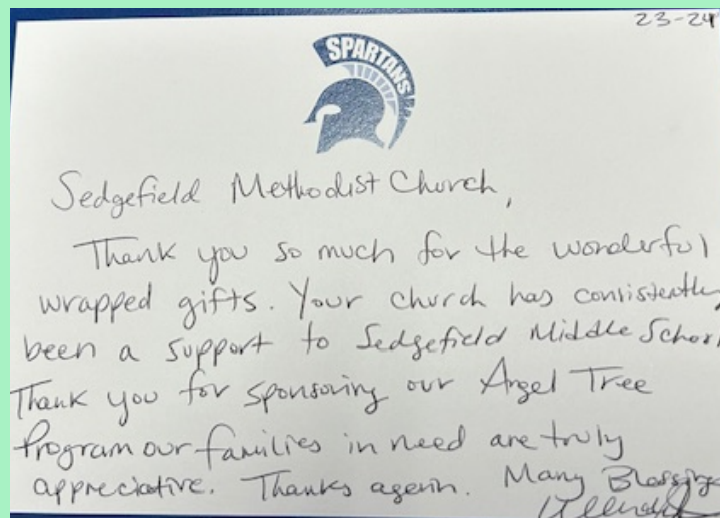 23-24
SPARTANS
Sedgefield Methodist Church,
Thank you so much for the wonderful
wrapped gifts. Your church has consistently
been a support to Sedgefield Middle School
Thank you for sponsoring our Angel Tree
Program our families in need are truly
appreciative. Thanks again. Many Blessings